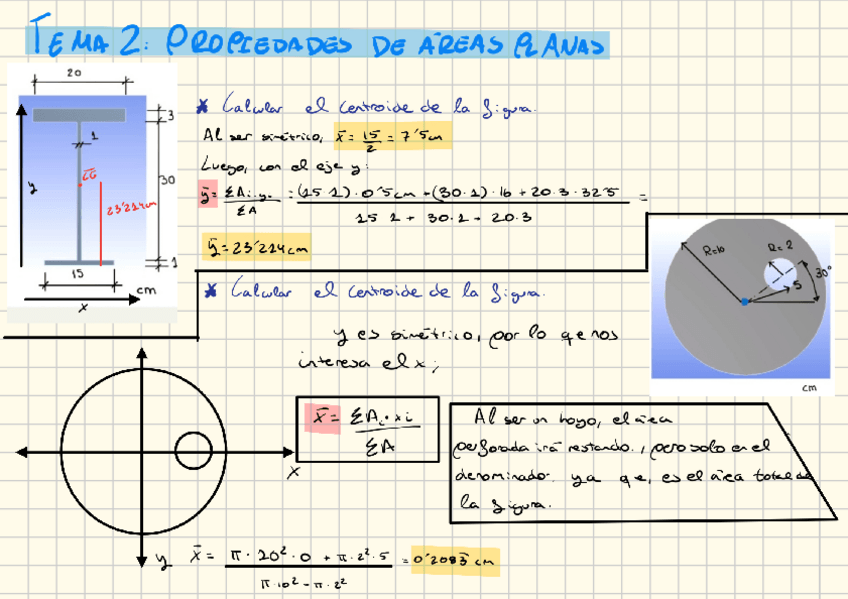 TEMA 2: PROPIEDADES DE ÁREAS PLANAS
20
3
1
y
CG
30
23'214cm
1
15
cm
x
* Calcular el centroide de la figura.
Al ser simétrico, x̄ = 15/2 = 7'5cm
Luego, con el eje y:
ȳ = ΣAi·yi / ΣA = (15·1)·0'5cm + (30·1)·16 + 20·3·32'5 / 15·1 + 30·1 + 20·3 =
ȳ = 23'214cm
R=10
R=2
5
30°
cm
* Calcular el centroide de la figura.
y es simétrico, por lo que nos
interesa el x;
x̄ = ΣAi·xi / ΣA
Al ser un hoyo, el área
perforada irá restando, pero solo en el
denominador. ya que, es el área total de
la figura.
x
y
x̄ = π·10²·0 + π·2²·5 / π·10² - π·2² = 0'2083 cm